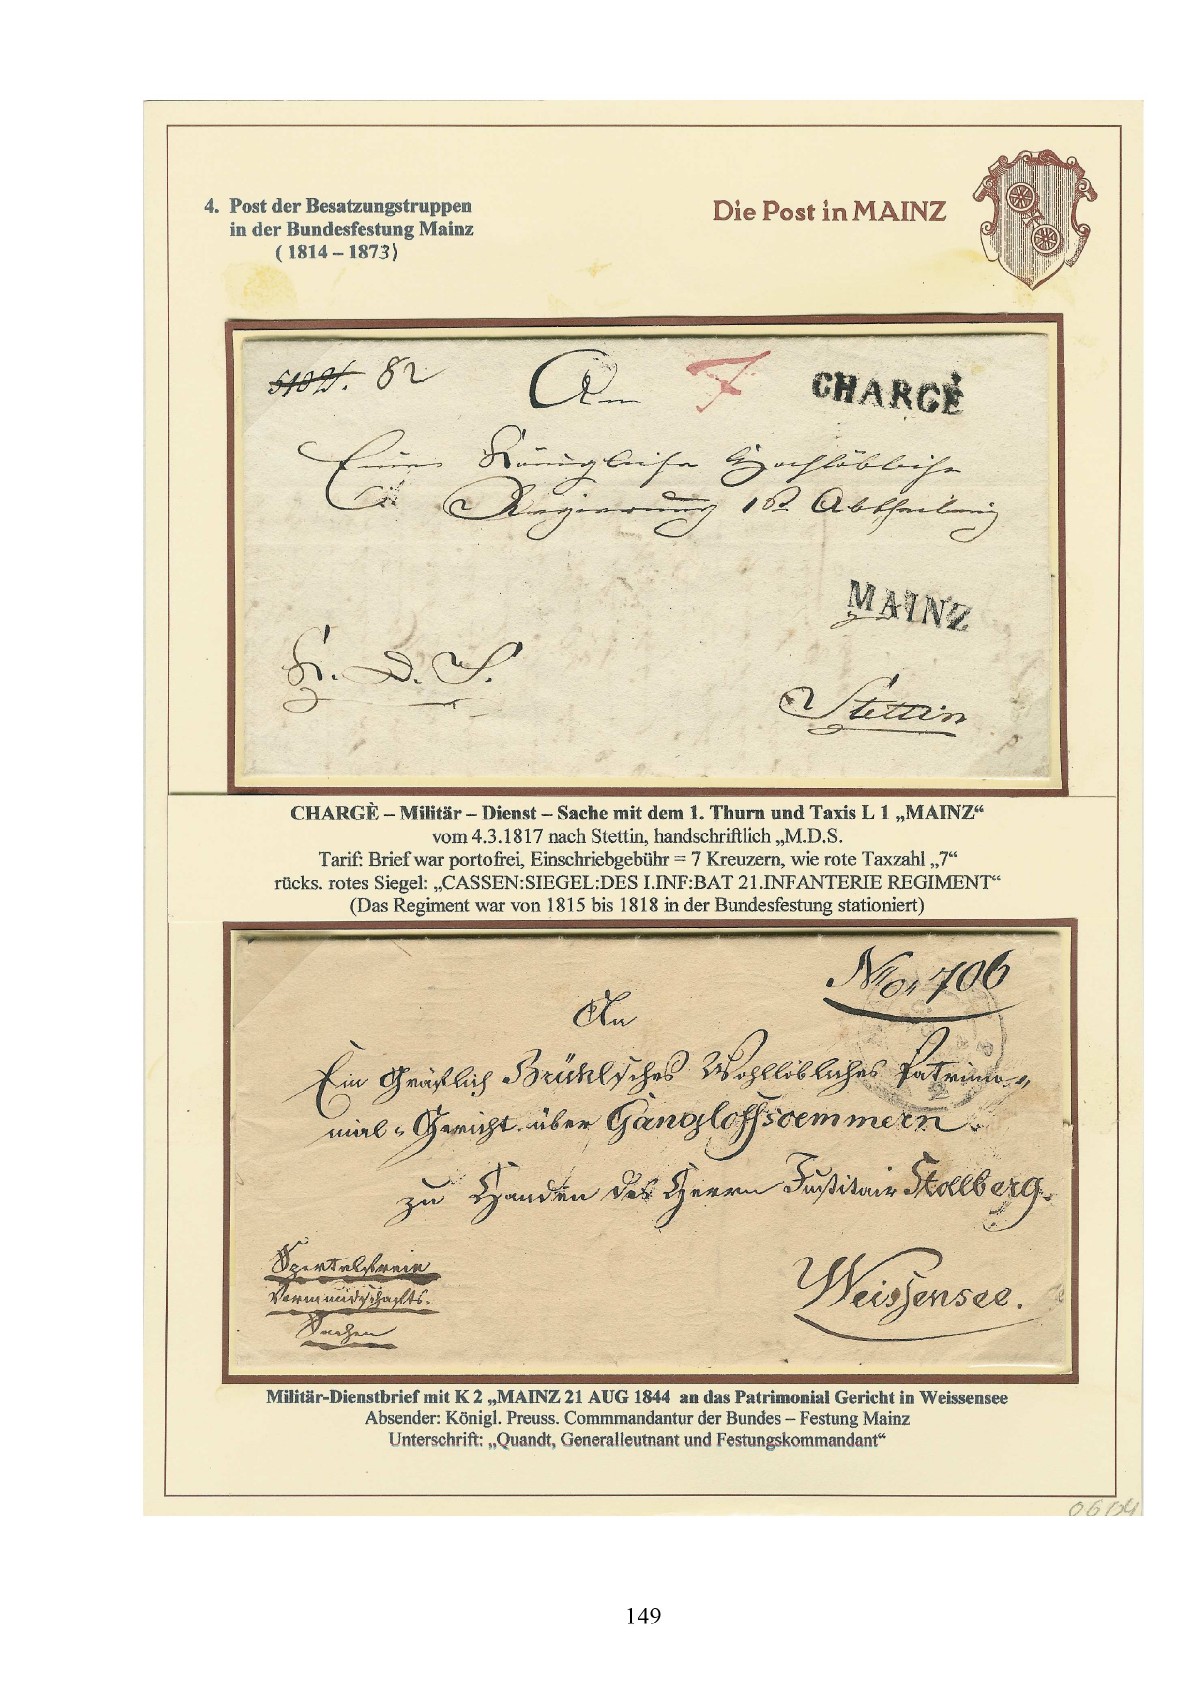 4. Post der Besatzungstruppen
in der Bundesfestung Mainz
( 1814 – 1873)
Die Post in MAINZ
82
An
7
CHARGÉ
Eine Königliche Hochlöbliche
Regierung Abtheilung
MAINZ
Stettin
CHARGÈ – Militär – Dienst – Sache mit dem 1. Thurn und Taxis L 1 „MAINZ“
vom 4.3.1817 nach Stettin, handschriftlich „M.D.S.
Tarif: Brief war portofrei, Einschriebgebühr = 7 Kreuzern, wie rote Taxzahl „7“
rücks. rotes Siegel: „CASSEN:SIEGEL:DES I.INF:BAT 21.INFANTERIE REGIMENT“
(Das Regiment war von 1815 bis 1818 in der Bundesfestung stationiert)
No. 706
An
Ein Gräflich Brühlsches Wohllöbliches Patrimo-
nial-Gericht über Gangloffsoemmern
zu Handen des Herrn Justitiar Stollberg.
Weissensee.
Vormundschafts-
Sachen
Militär-Dienstbrief mit K 2 „MAINZ 21 AUG 1844 an das Patrimonial Gericht in Weissensee
Absender: Königl. Preuss. Commmandantur der Bundes – Festung Mainz
Unterschrift: „Quandt, Generalleutnant und Festungskommandant“
06/04
149